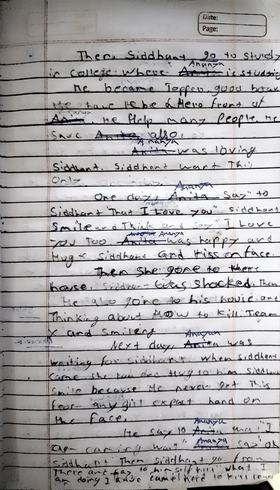 Date:
Page:
Then, Siddhant go to study
Ananya
in college where Anita is studing
He became Topper, good
He have to be a Hero front of
he Help many People. He
save Anita also.
Ananya
Anita was loving
Siddhant. Siddhant want This
Only
Ananya
One day, Anita say "to
Siddhant "That I Love you" Siddhant
Smile and Think and say "I Love
you Too Anita was happy and
Hug Siddhant and Kiss on face.
Then She gone to there
house. Siddhant Gets Shocked. Then
He also gone to his house and
Thinking about How to Kill Team
Y and Smiling
Ananya
Next day, Anita was
waiting for Siddhant when Siddhant
came She and Hug to him Siddhant
smile because He never get This
from any girl expect hand on
the face.
Ananya
He say to Anita that "I
Ananya
am coming" Anita say "oh
Siddhant Then Siddhant go from
There and say to himself what I
am doing I have came here to kill team